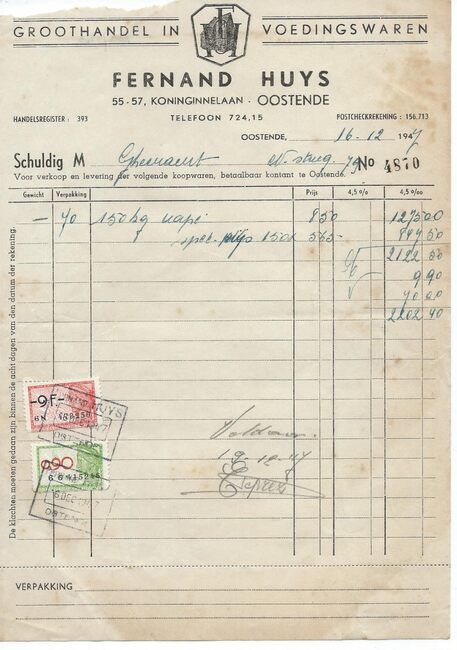 GROOTHANDEL IN VOEDINGSWAREN
FERNAND HUYS
55-57, KONINGINNELAAN - OOSTENDE
HANDELSREGISTER : 393 TELEFOON 724,15 POSTCHECKREKENING : 156.713
OOSTENDE, 16-12 1947
Schuldig M No 4870
Voor verkoop en levering der volgende koopwaren, betaalbaar kontant te Oostende.
Gewicht Verpakking Prijs 4,5 % 4,5 %
— 70 150 kg 850 1275 00
spec. 150 565- 847 50
2122 50
9 90
70 00
2202 40
De klachten moeten gedaan zijn binnen de acht dagen van den datum der rekening.
-9F-
HUYS
Voldaan
0,90
OSTENDE
VERPAKKING